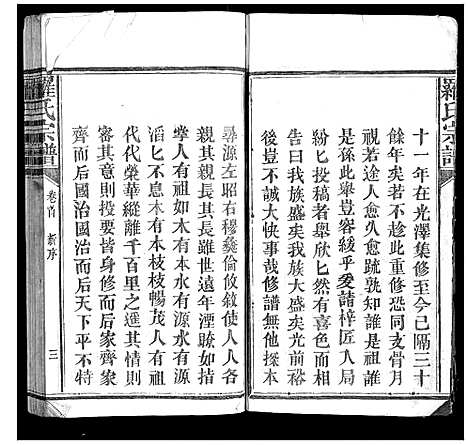 羅氏宗譜
十一年在光澤集修至今已隔三十
餘年矣若不趁此重修恐同支骨月
視若途人愈久愈疏孰知誰是祖誰
是孫此舉豈容緩乎爰請梓匠入局
剞劂投稿者舉欣欣然有喜色而相
告曰我族大盛矣我族大盛矣光前裕
後豈不誠大快事哉修譜無他探本
尋源左昭右穆彝倫攸敘使人人各
親其親長其長雖世遠年湮瞭如指
掌人有祖如木有本水有源水有源
滔匕不息木有本枝枝暢茂人有祖
代代榮華縱離千百里之遙其情同
審其意同修身而后家齊家
齊而后國治國治而后天下平不特
羅氏宗譜
卷首 新序
三